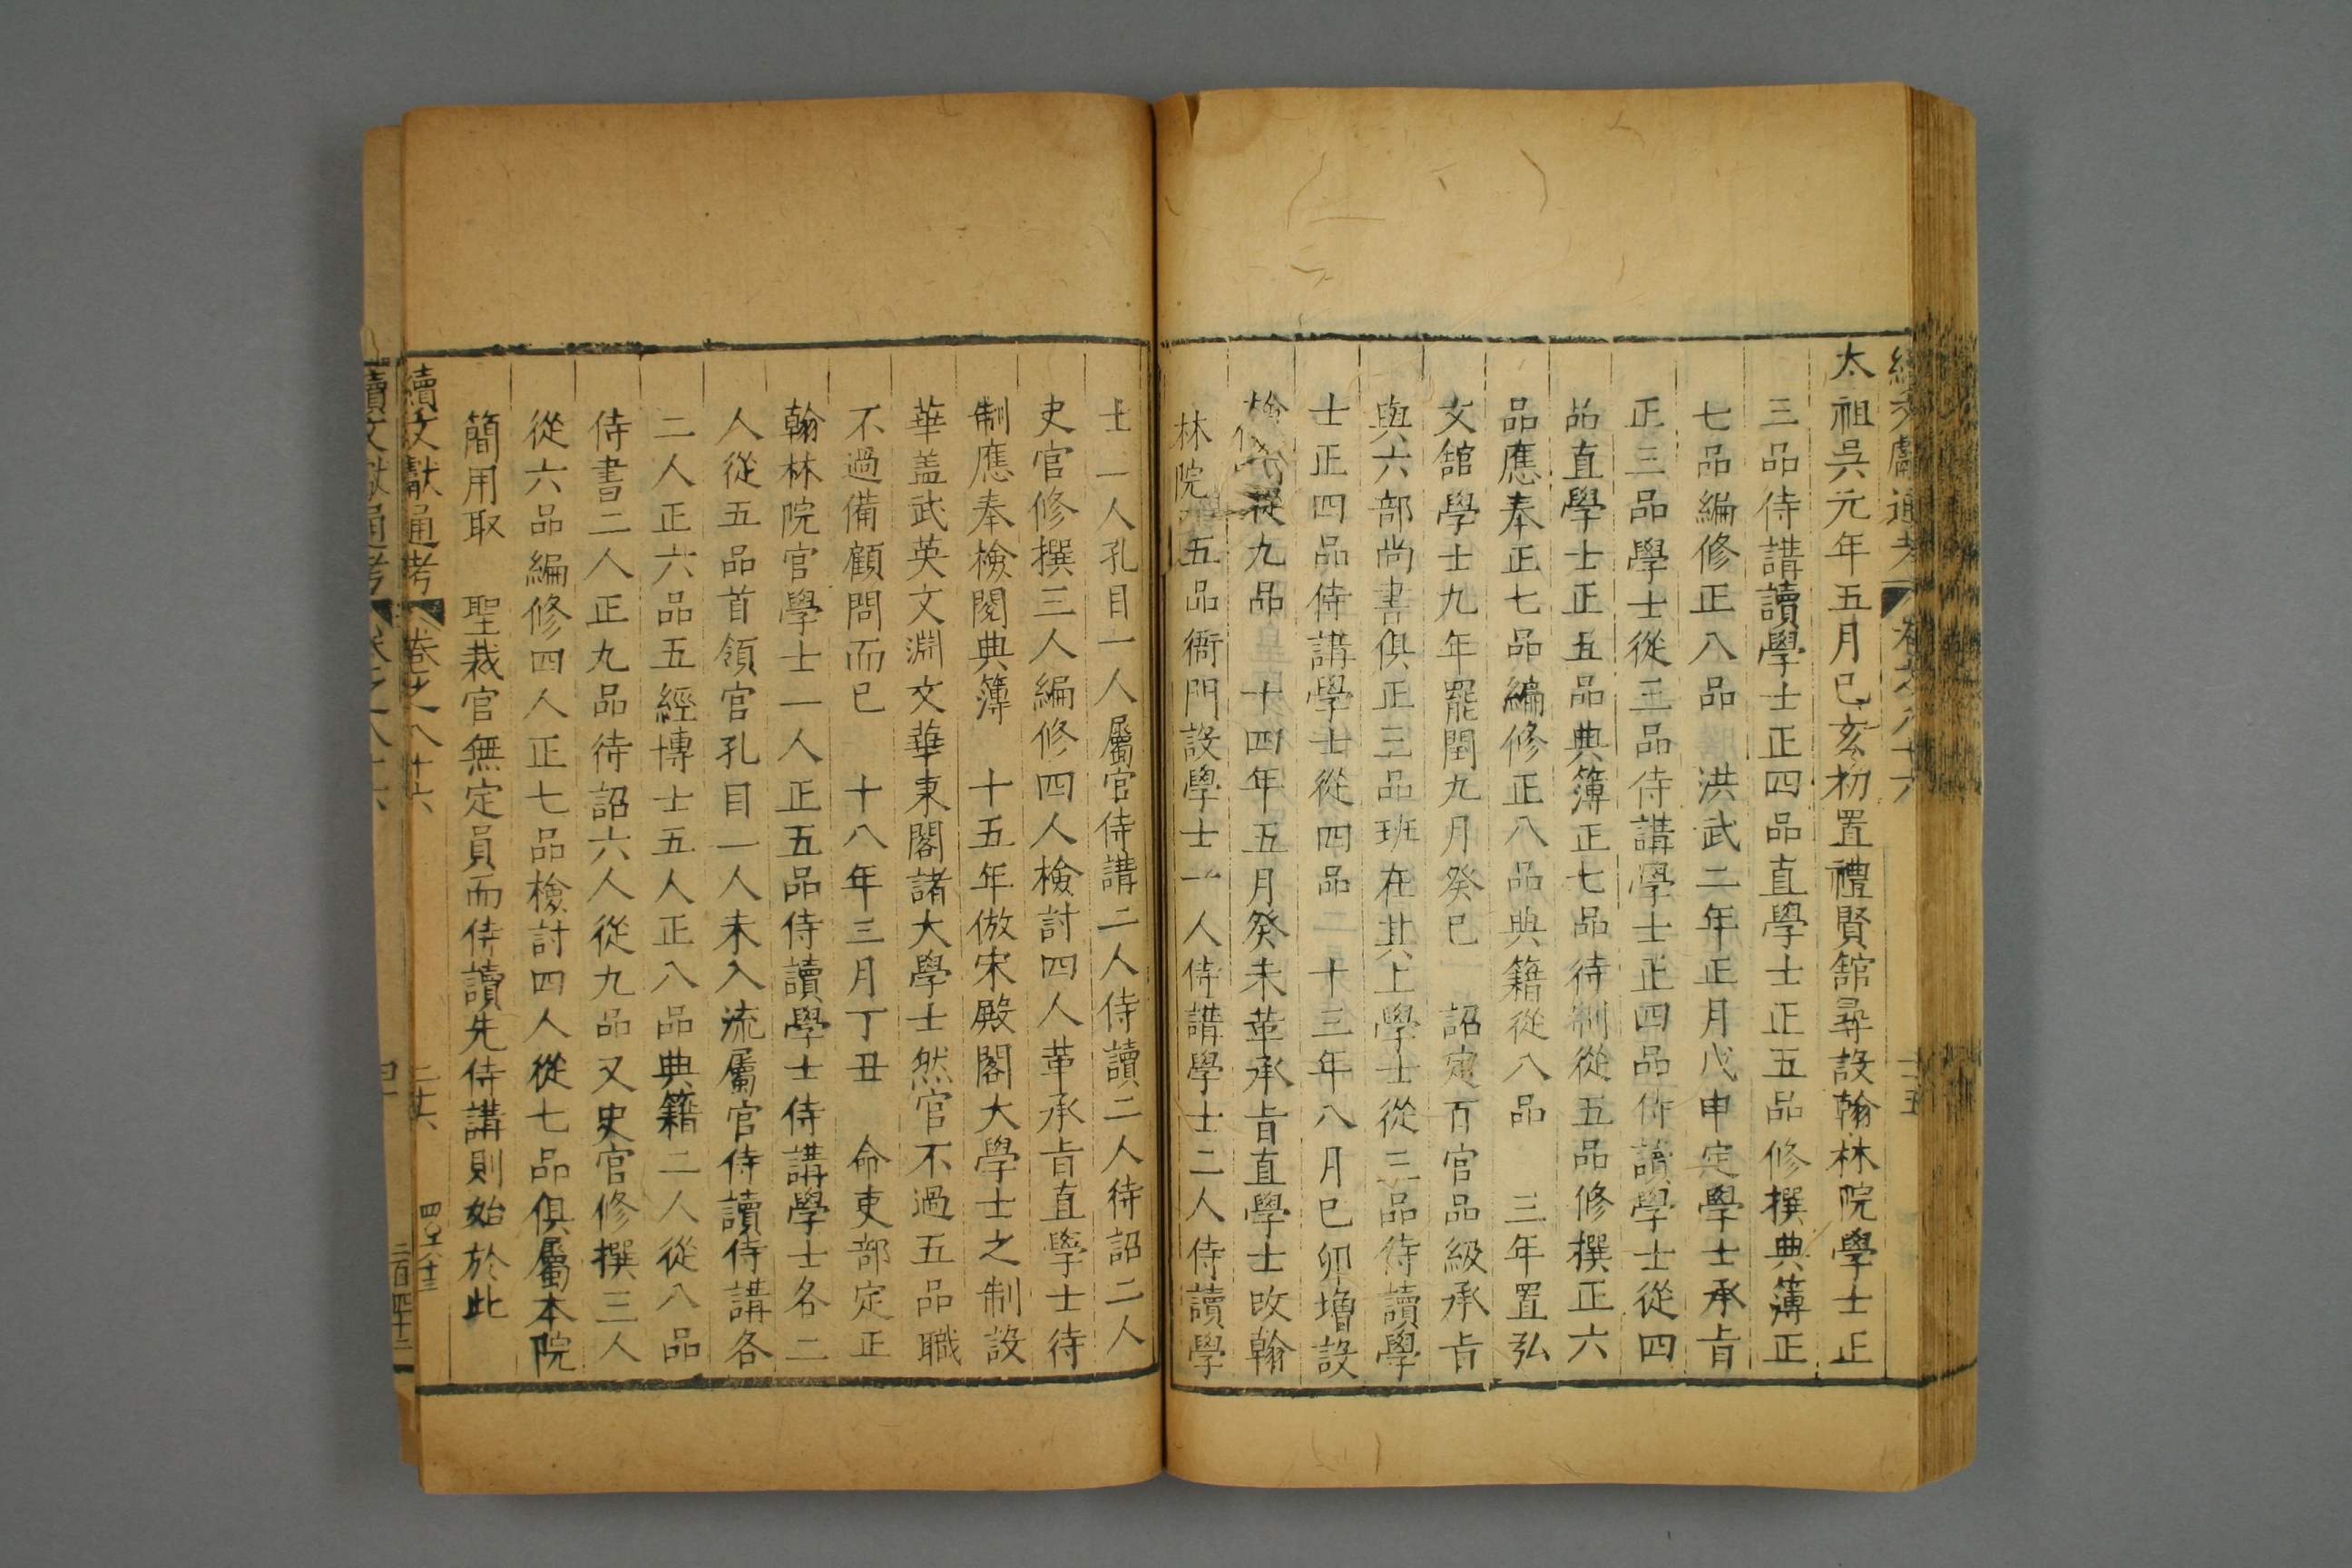 太祖吳元年五月己亥初置禮賢舘尋設翰林院學士正
三品侍講讀學士正四品直學士正五品修撰典簿正
七品編修正八品 洪武二年正月戊申定學士承旨
正三品學士從三品侍講學士正四品侍讀學士從四
品直學士正五品典簿正七品待制從五品修撰正六
品應奉正七品編修正八品典籍從八品 三年置弘
文舘學士九年罷閏九月癸巳 詔定百官品級承旨
與六部尚書俱正三品班在其上學士從三品侍讀學
士正四品侍講學士從四品 十三年八月己卯增設
檢從九品 十四年五月癸未革承旨直學士改翰
林院五品衙門設學士一人侍講學士二人侍讀學
士一人孔目一人屬官侍講二人侍讀二人待詔二人
史官修撰三人編修四人檢討四人革承旨直學士待
制應奉檢閱典簿 十五年倣宋殿閣大學士之制設
華盖武英文淵文華東閣諸大學士然官不過五品職
不過備顧問而已 十八年三月丁丑 命吏部定正
翰林院官學士一人正五品侍讀學士侍講學士各二
人從五品首領官孔目一人未入流屬官侍讀侍講各
二人正六品五經博士五人正八品典籍二人從八品
侍書二人正九品待詔六人從九品又史官修撰三人
從六品編修四人正七品檢討四人從七品俱屬本院
簡用取 聖裁官無定員而侍讀先侍講則始於此
續文獻通考 卷之八十六 二十六
續文獻通考 二百四十二